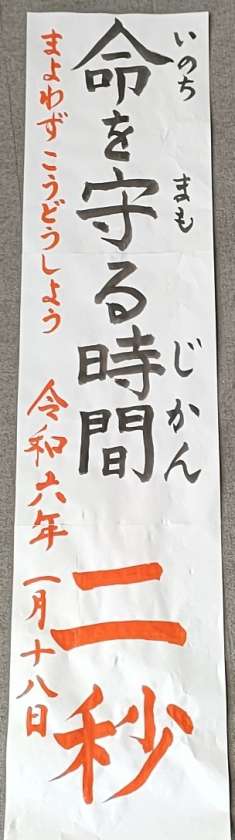 いのち まも じかん
命を守る時間 二秒
まよわず こうどうしよう 令和六年 一月十八日